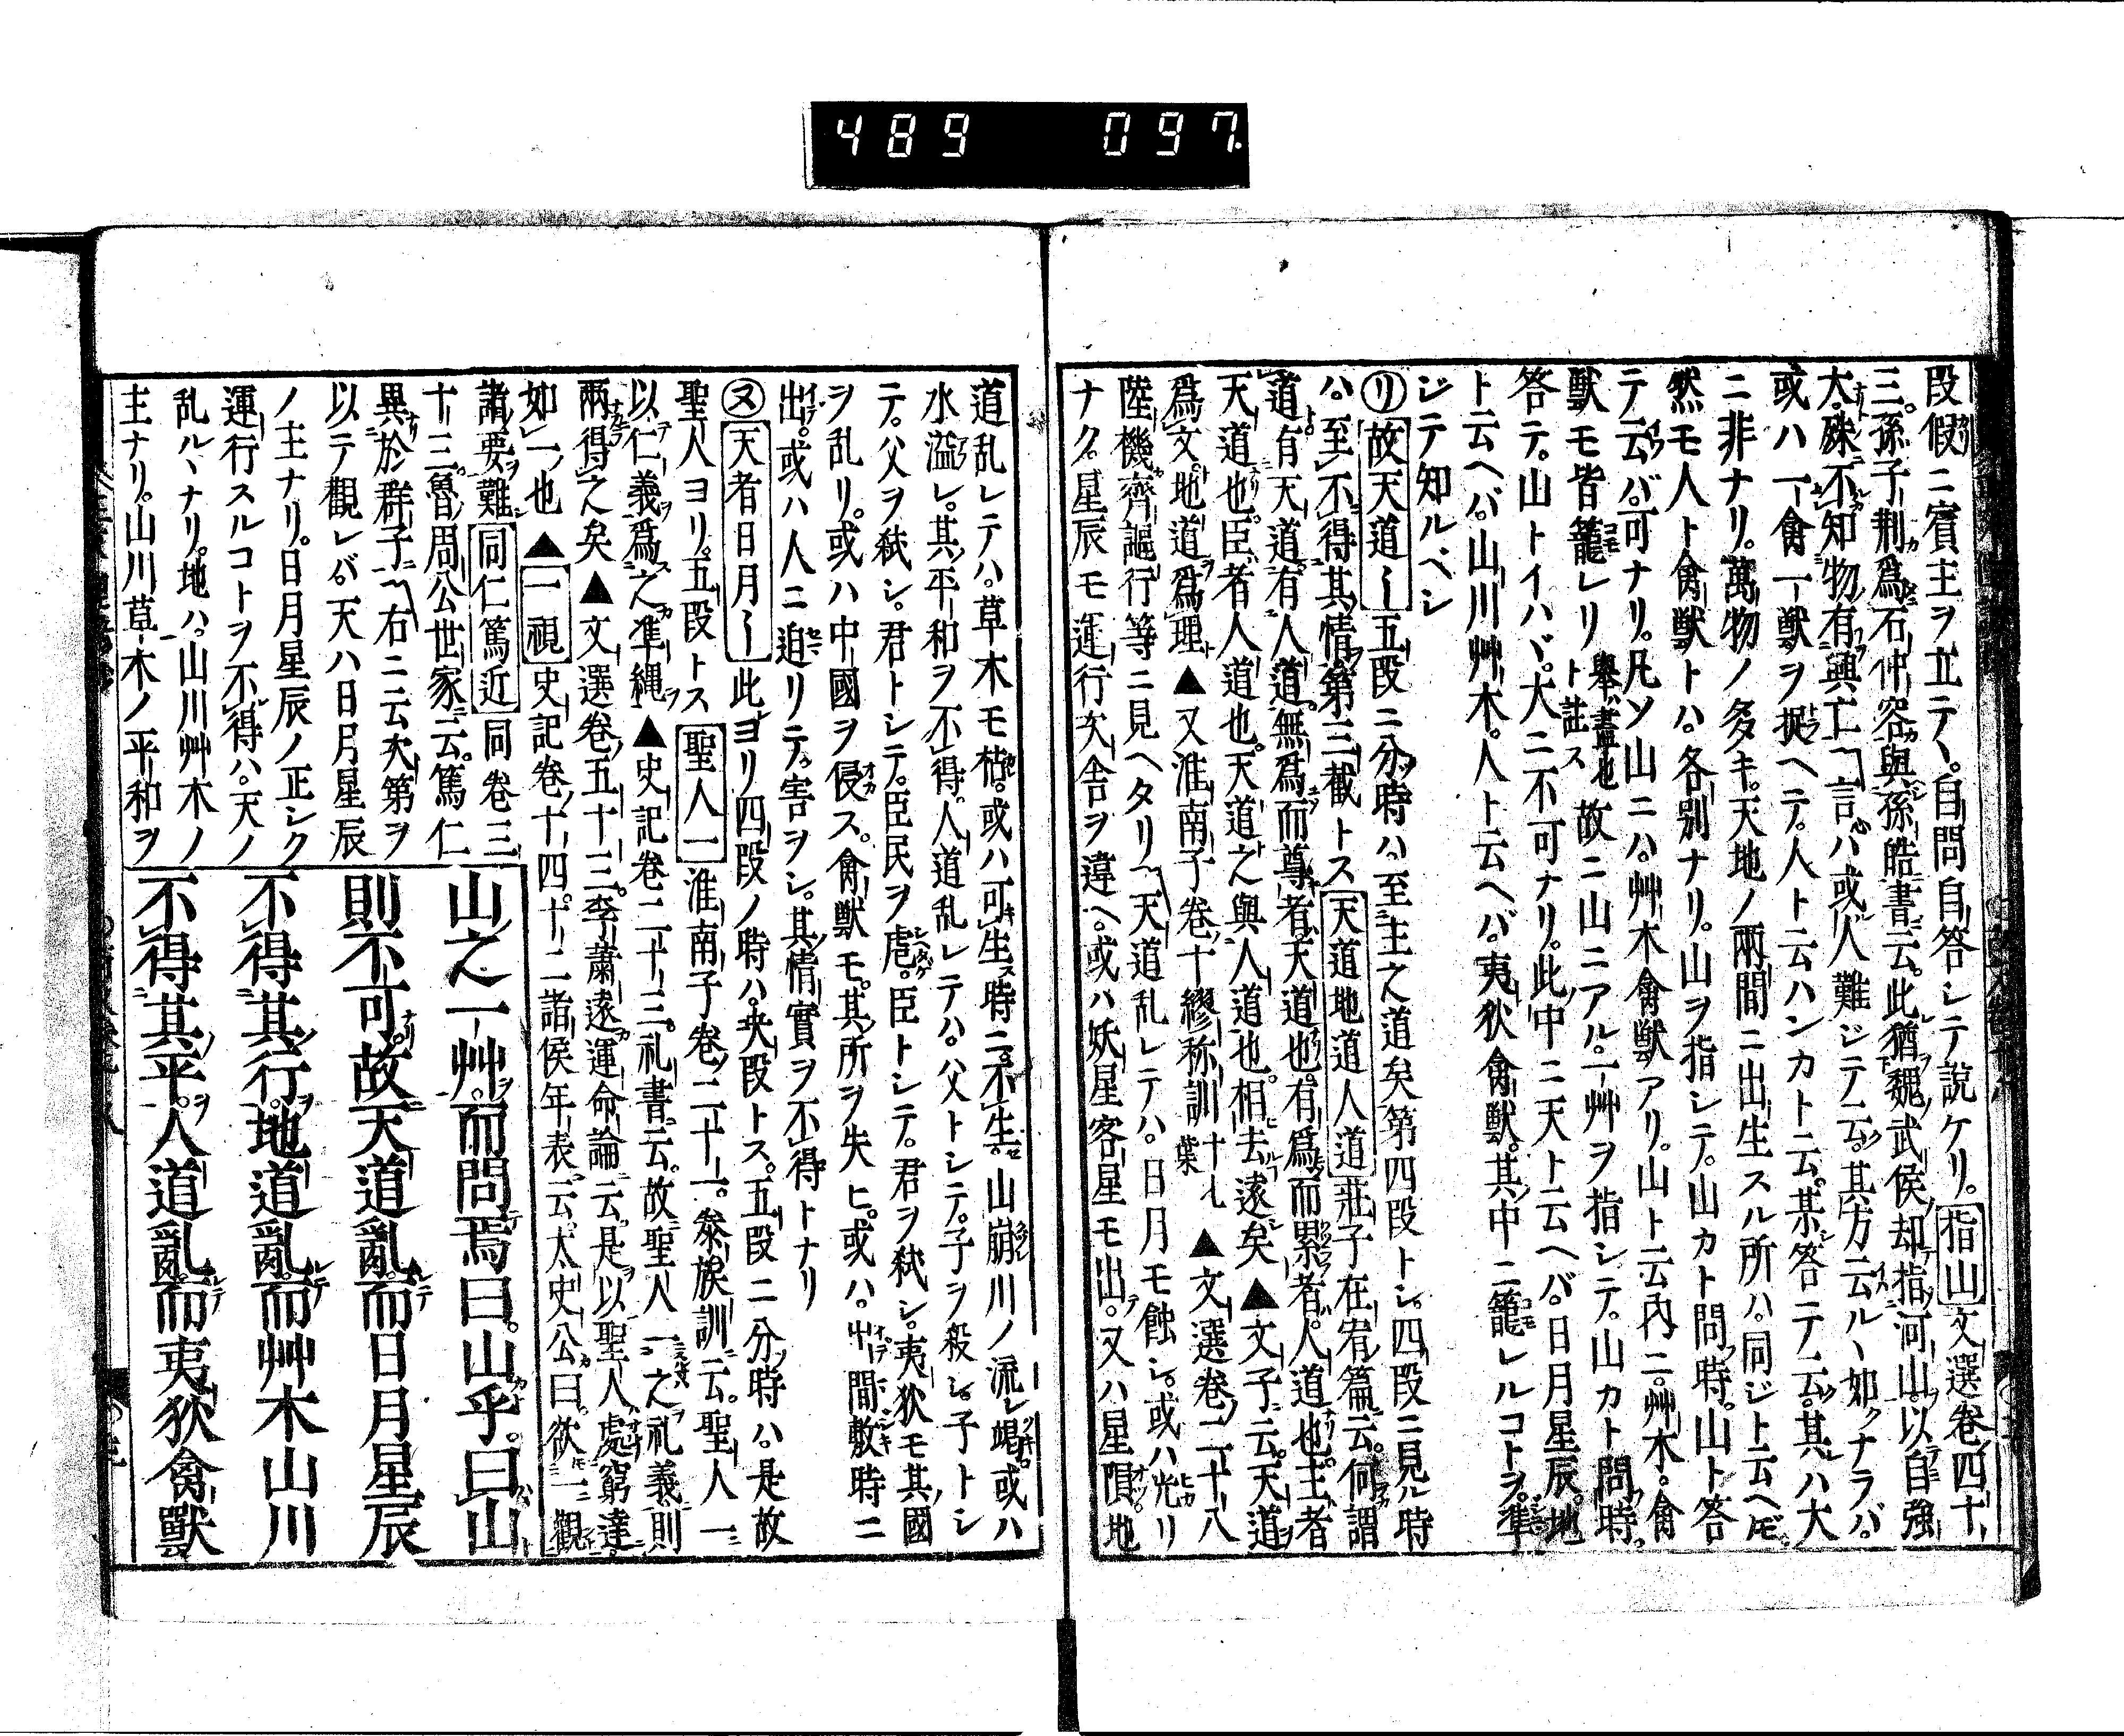 489 097
段假ニ賓主ヲ立テヽ。自問自答シテ說ケリ。指山文選卷四十
三。孫子荆爲石仲容與孫皓書云。此猶魏武侯却指河山。以自強
大。殊不知物有興亡言ハ。或人難ジテ云。其方云ルヽ如クナラバ。
或ハ一禽一獸ヲ捉ヘテ。人ト云ハンカト云。某答ニテ云。其ハ大
ニ非ナリ。萬物ノ多キ。天地ノ兩間ニ出生スル所ハ。同ジト云ヘドモ。
然モ人ト禽獸トハ。各別ナリ。山ヲ指シテ。山カト問時。山ト答
テ云バ。可ナリ。凡ソ山ニハ。艸木禽獸アリ。山ト云內ニ。艸木。禽
獸モ皆籠レリ擧盡地ト註ス故ニ山ニアル。一艸ヲ指シテ。山カト問時。
答テ。山トイハヾ。大ニ不可ナリ。此中ニ天ト云ヘバ。日月星辰。地
ト云ヘバ。山川艸木。人ト云ヘバ。夷狄禽獸。其中ニ籠レルコトヲ。準
ジテ知ルベシ
リ故天道〡五段ニ分時ハ。至主之道矣第四段トシ。四段ニ見ル時
ハ。至不得其情第三截トス天道地道人道莊子在宥篇云。何謂
道有天道有人道。無爲而尊者。天道也。有爲而累者。人道也。主者
天道也。臣者人道也。天道之與人道也。相去遠矣▲文子云。天道
爲文。地道爲理▲又淮南子卷十繆称訓十九葉▲文選卷二十八
陸機齊謳行等ニ見ヘタリ天道乱レテハ。日月モ蝕シ。或ハ光リ
ナク。星辰モ運行次舍ヲ違ヘ。或ハ妖星客星モ出。又ハ星隕。地
道乱レテハ。草木モ枯。或ハ可生時ニ不生。山崩川ノ流レ竭。或ハ
水溢レ。其平和ヲ不得。人道乱レテハ。父トシテ。子ヲ殺シ。子トシ
テ。父ヲ弑シ。君トシテ。臣民ヲ虐。臣トシテ。君ヲ弑シ。夷狄モ其國
ヲ乱リ。或ハ中國ヲ侵ス。禽獸モ。其所ヲ失ヒ。或ハ。山間數時ニ
出。或ハ人ニ迫リテ。害ヲシ。其情實ヲ不得トナリ
ヌ天者日月〡此ヨリ四段ノ時ハ。央段トス。五段ニ分時ハ。是故
聖人ヨリ。五段トス聖人一淮南子卷二十一。泰族訓云。聖人一
以仁義爲之準縄▲史記卷二十三。礼書云。故聖人一之礼義則
兩得之矣▲文選卷五十三。李蕭遠運命論云。是以聖人處窮達
如一也▲一視史記卷十四。十二諸侯年表云。太史公曰。欲一觀
諸要難同仁篤近同卷三
十三。魯周公世家云。篤仁
異於群子右ニ云次第ヲ
以テ觀レバ。天ハ日月星辰
ノ主ナリ。日月星辰ノ正シク
運行スルコトヲ不得ハ。天ノ
乱ルヽナリ。地ハ。山川艸木ノ
主ナリ。山川草木ノ平和ヲ
山之一艸而問焉曰。山乎。曰山
則不可。故天道亂而日月星辰
不得其行。地道亂而艸木山川
不得其平。人道亂而夷狄禽獸